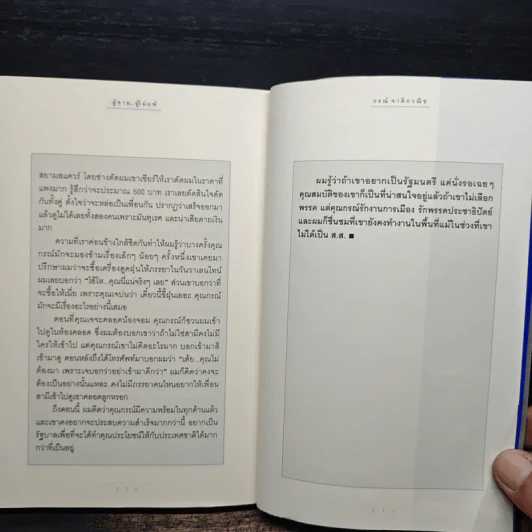 ผู้ชาย..ผู้ไม่แพ้
สยามสแควร์ โดยช่างตัดผมเขาเชียร์ให้เราตัดผมในราคาที่
แพงมาก รู้สึกว่าจะประมาณ 500 บาท เราเลยตัดสินใจตัด
กันทั้งคู่ ตั้งใจว่าจะหล่อเป็นเพื่อนกัน ปรากฏว่าเสร็จออกมา
แล้วดูไม่ได้เลยทั้งสองคนเพราะมันทุเรศ และน่าเสียดายเงิน
มาก
ความที่เราค่อนข้างใกล้ชิดกันทำให้ผมรู้ว่าบางครั้งคุณ
กรณ์มักจะมองข้ามเรื่องเล็กๆ น้อยๆ ครั้งหนึ่งเขาเคยมา
ปรึกษาผมว่าจะซื้อเครื่องดูดฝุ่นให้ภรรยาในวันวาเลนไทน์
ผมเลยบอกว่า "โอ้โห...คุณนี่แน่จริงๆ เลย" ส่วนเขาบอกว่าที่
จะซื้อให้เนี่ย เพราะคุณเจบ่นว่า เดี๋ยวนี้ขี้ฝุ่นเยอะ คุณกรณ์
มักจะมีเรื่องอะไรอย่างนี้เสมอ
ตอนที่คุณเจจะคลอดน้องจอม คุณกรณ์ก็ชวนผมเข้า
ไปดูในห้องคลอด ซึ่งผมต้องบอกเขาว่าถ้าไม่ใช่สามีคงไม่มี
ใครให้เข้าไป แต่คุณกรณ์เขาไม่คิดอะไรมาก บอกเข้ามาสิ
เข้ามาดู ตอนหลังถึงได้โทรศัพท์มาบอกผมว่า "เต้ย...คุณไม่
ต้องมา เพราะเจบอกว่าอย่าเข้ามาดีกว่า" ผมก็คิดว่าคงจะ
ต้องเป็นอย่างนั้นแหละ คงไม่มีภรรยาคนไหนอยากให้เพื่อน
สามีเข้าไปดูเขาคลอดลูกหรอก
ถึงตอนนี้ ผมคิดว่าคุณกรณ์มีความพร้อมในทุกด้านแล้ว
และเขาคงอยากจะประสบความสำเร็จมากกว่านี้ อยากเป็น
รัฐบาลเพื่อที่จะได้ทำคุณประโยชน์ให้กับประเทศชาติได้มาก
กว่าที่เป็นอยู่
กรณ์ จาติกวณิช
ผมรู้ว่าถ้าเขาอยากเป็นรัฐมนตรี แค่นั่งรอเฉยๆ
คุณสมบัติของเขาก็เป็นที่น่าสนใจอยู่แล้วถ้าเขาไม่เลือก
พรรค แต่คุณกรณ์รักงานการเมือง รักพรรคประชาธิปัตย์
และผมก็ชื่นชมที่เขายังคงทำงานในพื้นที่แม้ในช่วงที่เขา
ไม่ได้เป็น ส.ส. ■